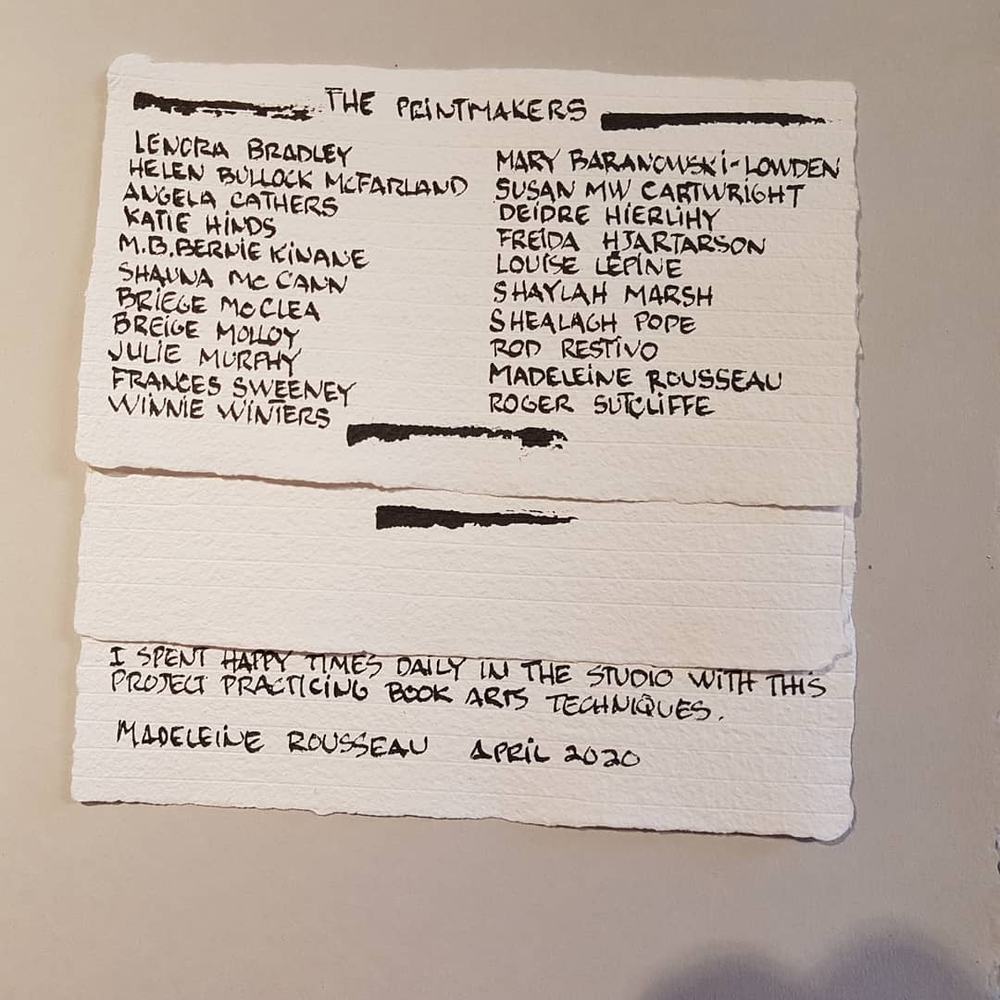 THE PRINTMAKERS
LENORA BRADLEY
HELEN BULLOCK McFARLAND
ANGELA CATHERS
KATIE HINDS
M.B.BERNIE KINANE
SHAUNA Mc CANN
BRIEGE McCLEA
BREIGE MOLLOY
JULIE MURPHY
FRANCES SWEENEY
WINNIE WINTERS
MARY BARANOWSKI-LOWDEN
SUSAN MW CARTWRIGHT
DEIDRE HIERLIHY
FREIDA HJARTARSON
LOUISE LÉPINE
SHAYLAH MARSH
SHEALAGH POPE
ROD RESTIVO
MADELEINE ROUSSEAU
ROGER SUTCLIFFE
I SPENT HAPPY TIMES DAILY IN THE STUDIO WITH THIS
PROJECT PRACTICING BOOK ARTS TECHNIQUES.
MADELEINE ROUSSEAU APRIL 2020